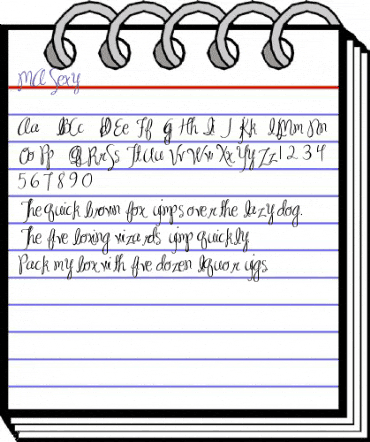 MA Sexy
Aa Bb Cc Dd Ee Ff Gg Hh Ii Jj Kk Ll Mm Nn
Oo Pp Qq Rr Ss Tt Uu Vv Ww Xx Yy Zz 1 2 3 4
5 6 7 8 9 0
The quick brown fox jumps over the lazy dog.
The five boxing wizards jump quickly
Pack my box with five dozen liquor jugs